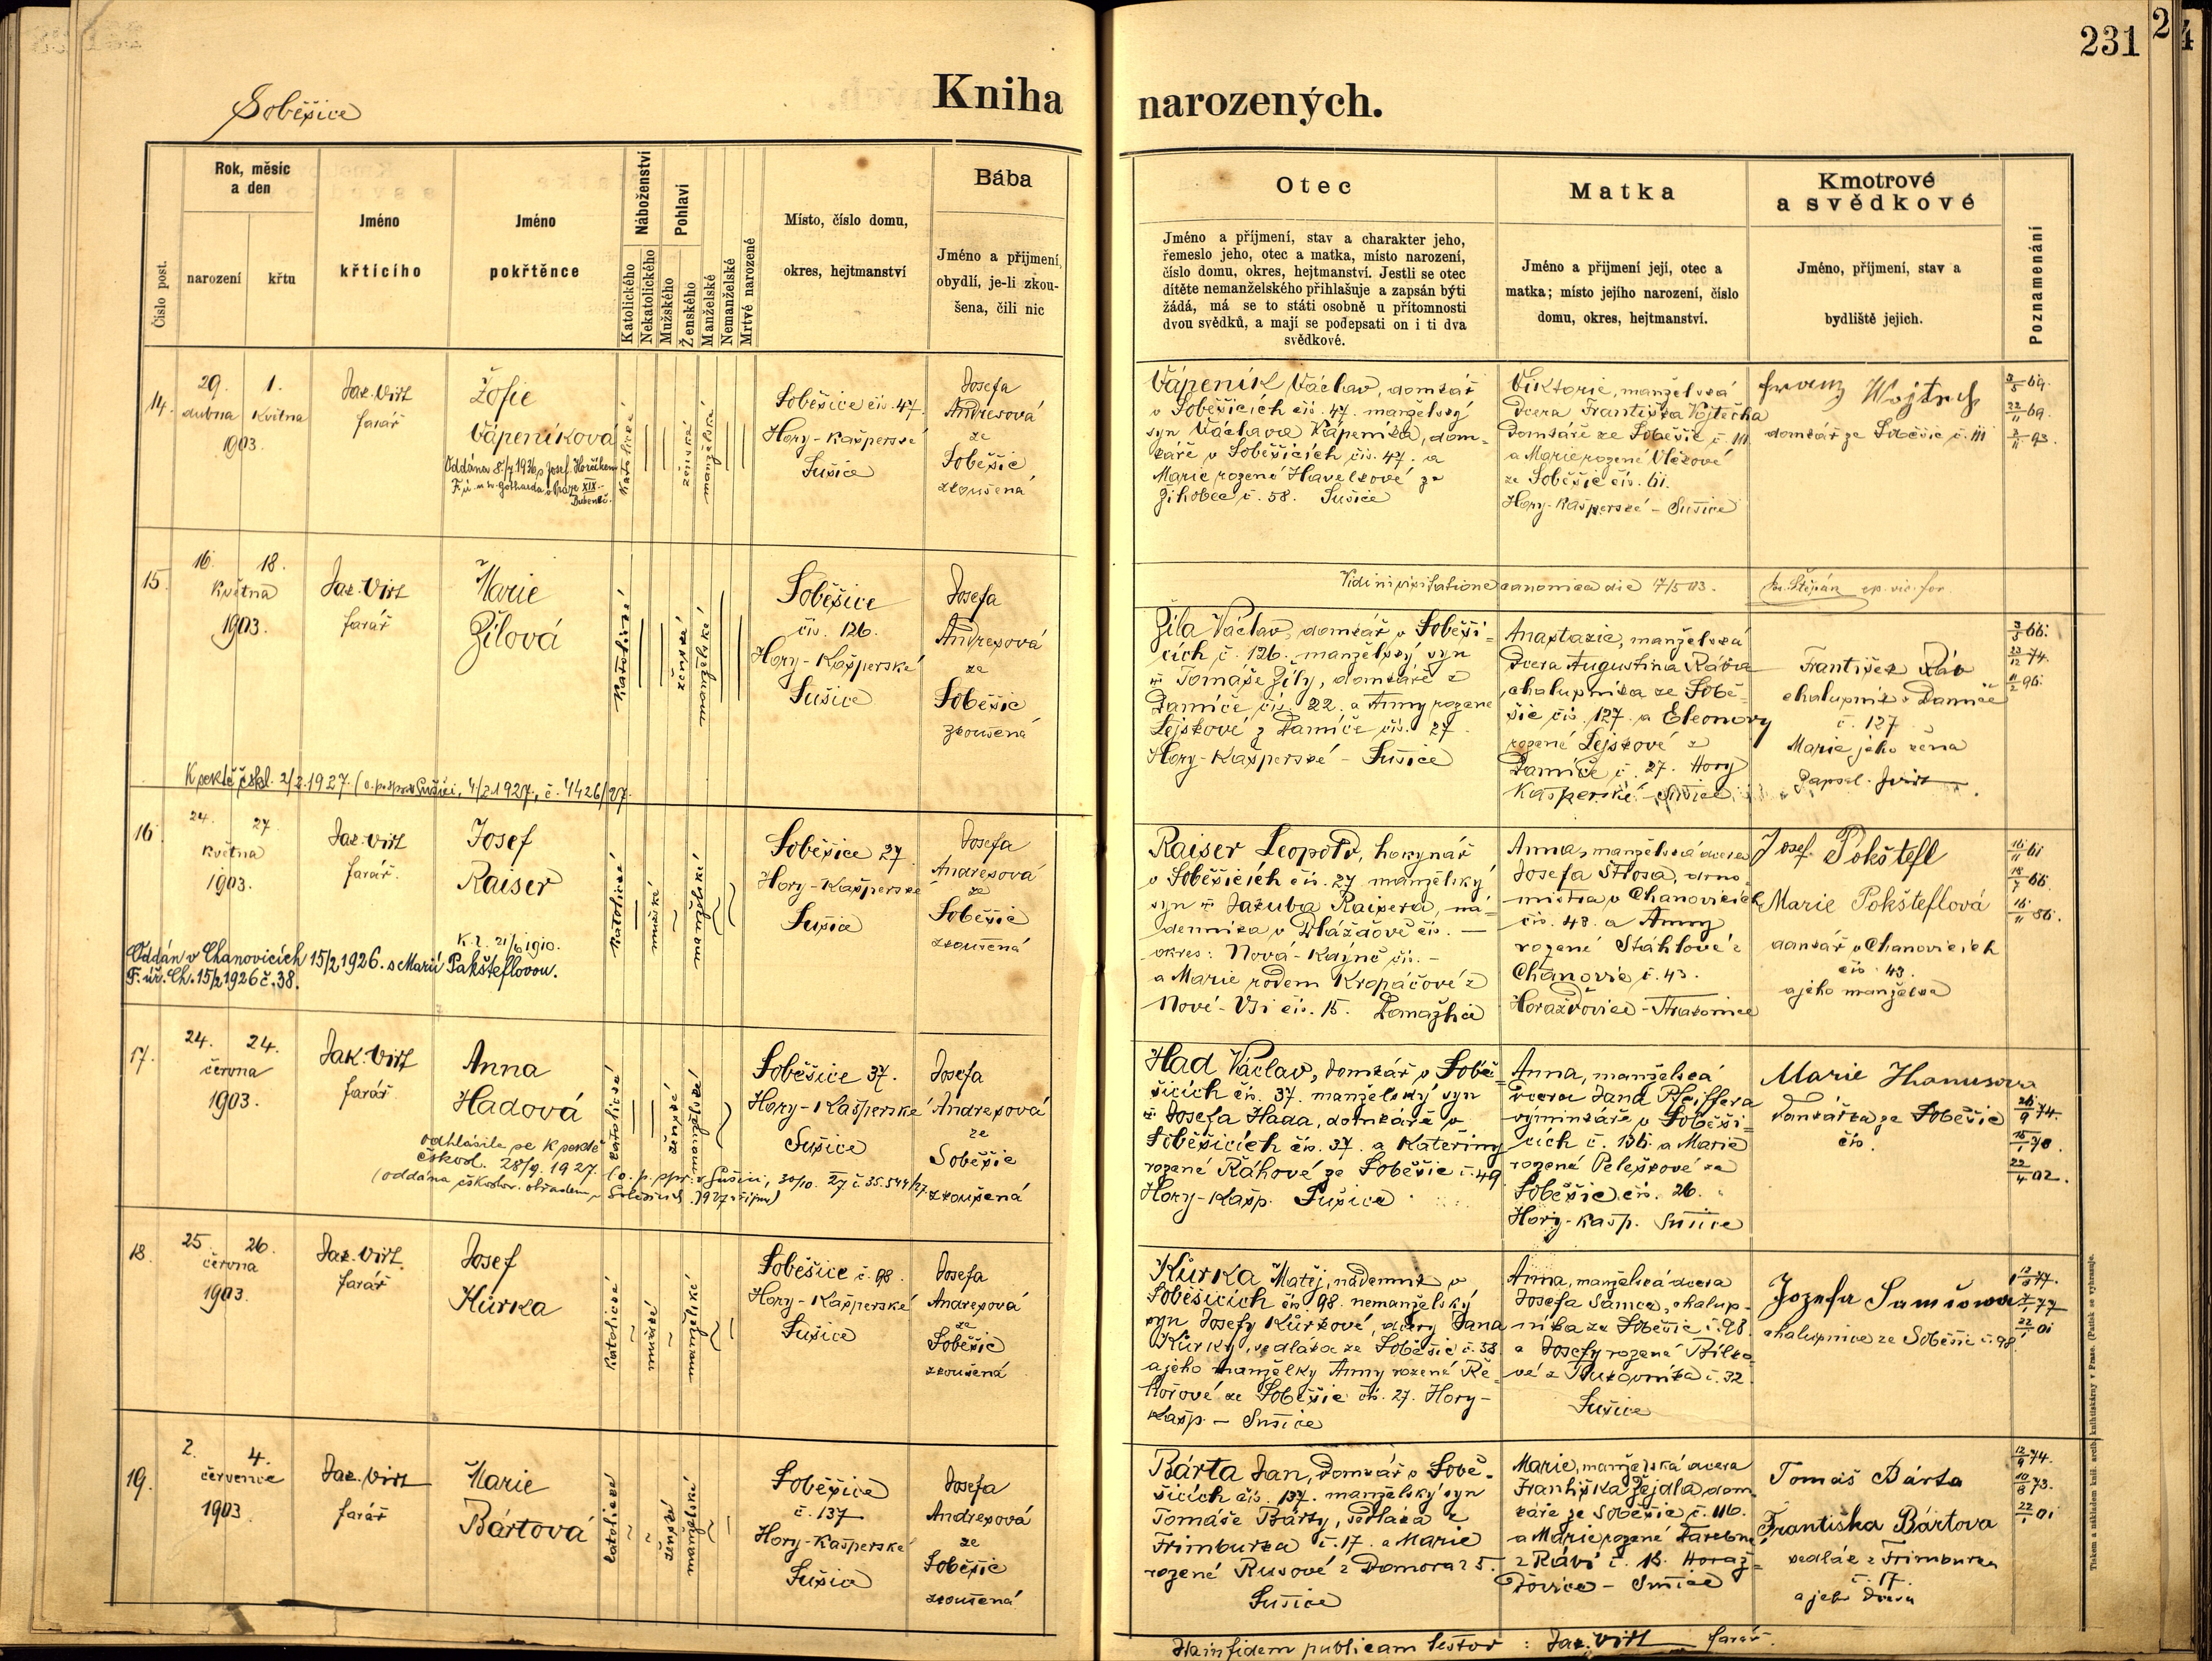 231
Soběšice
Kniha narozených.
Číslo post.
Rok, měsíc
a den
narození
křtu
Jméno
křtícího
Jméno
pokřtěnce
Náboženství
Katolického
Nekatolického
Pohlaví
Mužského
Ženského
Manželské
Nemanželské
Mrtvě narozené
Místo, číslo domu,
okres, hejtmanství
Bába
Jméno a přijmení,
obydlí, je-li zkou-
šena, čili nic
Otec
Jméno a příjmení, stav a charakter jeho,
řemeslo jeho, otec a matka, místo narození,
číslo domu, okres, hejtmanství. Jestli se otec
dítěte nemanželského přihlašuje a zapsán býti
žádá, má se to státi osobně u přítomnosti
dvou svědků, a mají se podepsati on i ti dva
svědkové.
Matka
Jméno a přijmení její, otec a
matka; místo jejího narození, číslo
domu, okres, hejtmanství.
Kmotrové
a svědkové
Jméno, příjmení, stav a
bydliště jejich.
Poznamenání
14.
29. 1.
dubna Května
1903.
Jak. Virt
farář
Žofie
Vápeníková
Oddána 8./7 1936 s Josef. Horčíkem
F. ú. u sv. Gotharda v Praze XIX.-
Bubenči.
Katolické
ženské
manželské
Soběšice čís. 47.
Hory-Kašperské
Sušice
Josefa
Andresová
ze
Soběšic
zkoušená
Vápeník Václav, domkář
v Soběšicích čís. 47. manželský
syn Václava Vápeníka, dom-
káře v Soběšicích čís. 47. a
Marie rozené Havelkové ze
Žihobec č. 58. Sušice
Viktorie, manželská
dcera Františka Vojtěcha
domkáře ze Soběšic č. 111.
a Marie rozené Vlčkové
ze Soběšic čís. 61.
Hory-Kašperské - Sušice
Franz Wojtěch
domkář ze Soběšic č. 111
3/5 69.
22/11 69.
3/11 93.
15.
16. 18.
Května
1903.
Jak. Virt
farář
Marie
Žilová
Katolické
ženské
manželské
Soběšice
čís. 126.
Hory-Kašperské
Sušice
Josefa
Andresová
ze
Soběšic
zkoušená
K sektě čskl. 2/2. 1927. (o. p. spr. v Sušici, 4/2 1927, č. 4426/27.
Vidi in visitatione canonica die 17/5 03.
Fr. Štěpán ep. vic. for.
Žíla Václav, domkář v Soběši-
cích č. 126. manželský syn
Tomáše Žíly, domkáře z
Damíče čís. 22. a Anny rozené
Lejskové z Damíče čís. 27.
Hory-Kašperské - Sušice
Anastazie, manželská
dcera Augustina Rába
chalupníka ze Sobě-
šic čís. 127. a Eleonory
rozené Lejskové z
Damíče č. 27. Hory
Kašperské - Sušice
František Ráb
chalupník z Damíče
č. 127
Marie jeho žena
Zapsal. JVirt
3/3 66.
23/12 74.
11/2 96.
16
24. 27.
Května
1903.
Jak. Virt
farář.
Josef
Raiser
K. 1. 21/6 1910.
Oddán v Chanovicích 15/2 1926. s Marií Pakšteflovou.
F. úř. Ch. 15/2 1926 č. 38.
Katolické
mužské
manželské
Soběšice 27
Hory-Kašperské
Sušice
Josefa
Andresová
ze
Soběšic
zkoušená
Raiser Leopold, hokynář
v Soběšicích čís. 27 manželský
syn Jakuba Raisera, ná-
denníka v Dlážďově čís. —
okres: Nová-Kdyně čís. -
a Marie rodem Kropáčové z
Nové-Vsi čís. 15. Domažlice
Anna, manželská dcera
Josefa Štosa, domo-
mistra v Chanovicích
čís. 43. a Anny
rozené Stáhlové z
Chanovic č. 43.
Horažďovice - Strakonice
Josef Pokštefl
Marie Pokšteflová
domkář v Chanovicích
čís. 43.
a jeho manželka
16/11 61
18/7 66.
16/11 86.
17.
24. 24.
června
1903.
Jak. Virt
farář
Anna
Hadová
odhlásila se k sektě
čskosl. 28/9. 1927.
(o. p. spr. v Sušici, 30/10. 27 č. 35.544/27.
(oddána čskoslov. obřadem v Soběšicích 1927 v říjnu)
Katolické
ženské
manželské
Soběšice 37.
Hory-Kašperské
Sušice
Josefa
Andresová
ze
Soběšic
zkoušená
Had Václav, domkář v Sobě-
šicích čís. 37. manželský syn
Josefa Hada, domkáře v
Soběšicích čís. 37. a Kateřiny
rozené Ráhové ze Soběšic č. 49
Hory-Kašp. Sušice
Anna, manželská
dcera Jana Pfeiffera
výminkáře v Soběši-
cích č. 136. a Marie
rozené Peleškové ze
Soběšic čís. 26.
Hory-Kašp. Sušice
Marie Hanusova
domkářka ze Soběšic
čís.
26/9 74.
15/1 78.
22/4 02.
18.
25. 26.
června
1903.
Jak. Virt
farář
Josef
Kůrka
Katolické
mužské
manželské
Soběšice č. 98.
Hory-Kašperské
Sušice
Josefa
Andresová
ze
Soběšic
zkoušená
Kůrka Matěj, nádenník v
Soběšicích čís. 98. nemanželský
syn Josefy Kůrkové, dcery Jana
Kůrky, sedláka ze Soběšic č. 38
a jeho manželky Anny rozené Ře-
hořové ze Soběšic čís. 27. Hory-
Kašp. - Sušice
Anna, manželská dcera
Josefa Samce, chalup-
níka ze Soběšic č. 98.
a Josefy rozené Bílko-
vé z Bukovníka č. 32.
Sušice
Jozefa Samcowa
chalupnice ze Soběšic č. 98.
77.
77
22/1 01
19.
2. 4.
července
1903.
Jak. Virt
farář
Marie
Bártová
Katolické
ženské
manželské
Soběšice
č. 137
Hory-Kašperské
Sušice
Josefa
Andresová
ze
Soběšic
zkoušená
Bárta Jan, domkář v Sobě-
šicích čís. 137. manželský syn
Tomáše Bárty, sedláka z
Frimburka č. 17. a Marie
rozené Rusové z Domoraz 5.
Sušice
Marie, manželská dcera
Františka Žejdla, dom-
káře ze Soběšic č. 116.
a Marie rozené
z Rábí č. 18. Horaž-
ďovice - Sušice
Tomáš Bárta
Františka Bártova
sedlák z Frimburka
č. 17.
a jeho dcera
12/9 74.
10/8 73.
22/1 01
Ita in fidem publicam testor : Jak. Virt farář.
Tiskem a nákladem kníž. arcib. knihtiskárny v Praze. (Patisk se vyhrazuje.